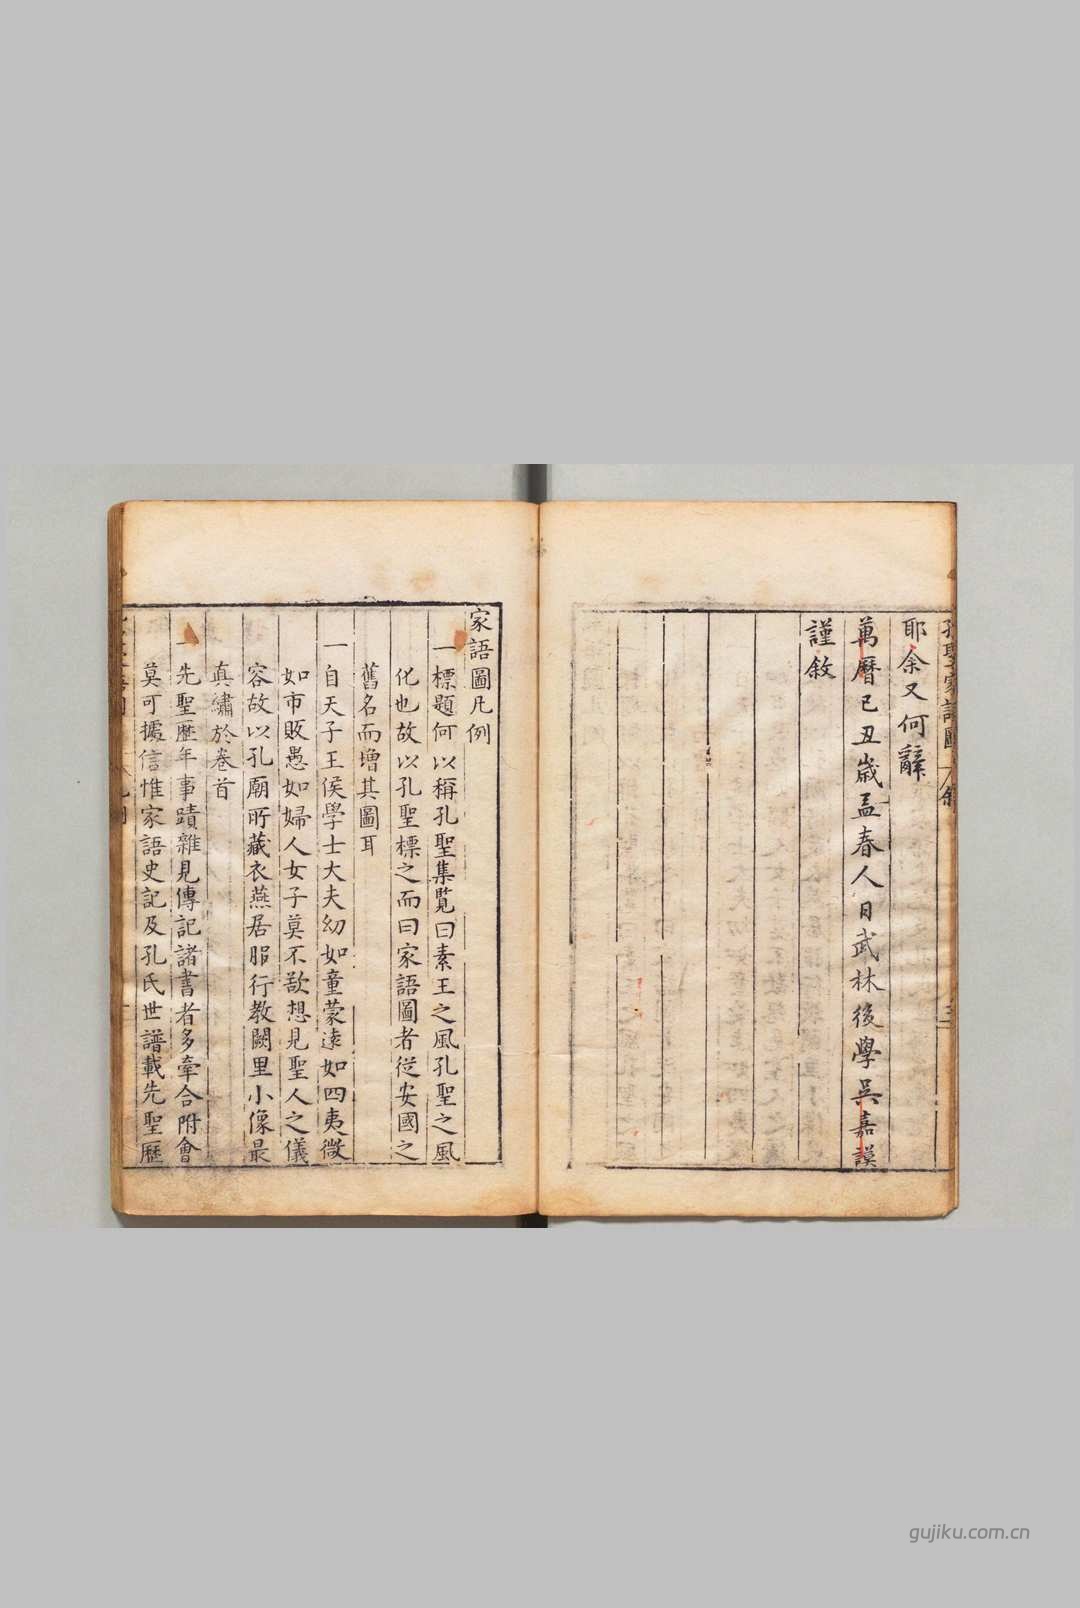 耶余又何辭
萬曆己丑歲孟春人日武林後學吳嘉謨
謹敘
家語圖凡例
一標題何以稱孔聖集覽曰素王之風孔聖之風
化也故以孔聖標之而曰家語圖者從安國之
舊名而增其圖耳
一自天子王侯學士大夫幼如童蒙遠如四夷微
如市販愚如婦人女子莫不歆想見聖人之儀
容故以孔廟所藏衣燕居服行教闕里小像最
真繡於卷首
一先聖歷年事蹟雜見傳記諸書者多牽合附會
莫可據信惟家語史記及孔氏世譜載先聖歷
gujiku.com.cn